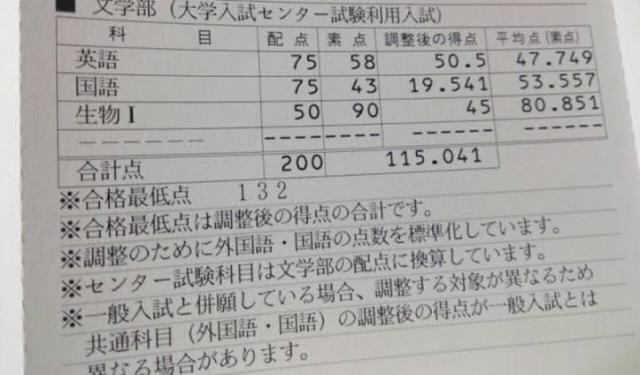 ■ 文学部（大学入試センター試験利用入試）
科 目 配 点 素 点 調整後の得点 平均点（素点）
英語 75 58 50.5 47.749
国語 75 43 19.541 53.557
生物Ⅰ 50 90 45 80.851
------ ---- ---- ------ ------
合計点 200 115.041
※合格最低点 132
※合格最低点は調整後の得点の合計です。
※調整のために外国語・国語の点数を標準化しています。
※センター試験科目は文学部の配点に換算しています。
※一般入試と併願している場合、調整する対象が異なるため
共通科目（外国語・国語）の調整後の得点が一般入試とは
異なる場合があります。